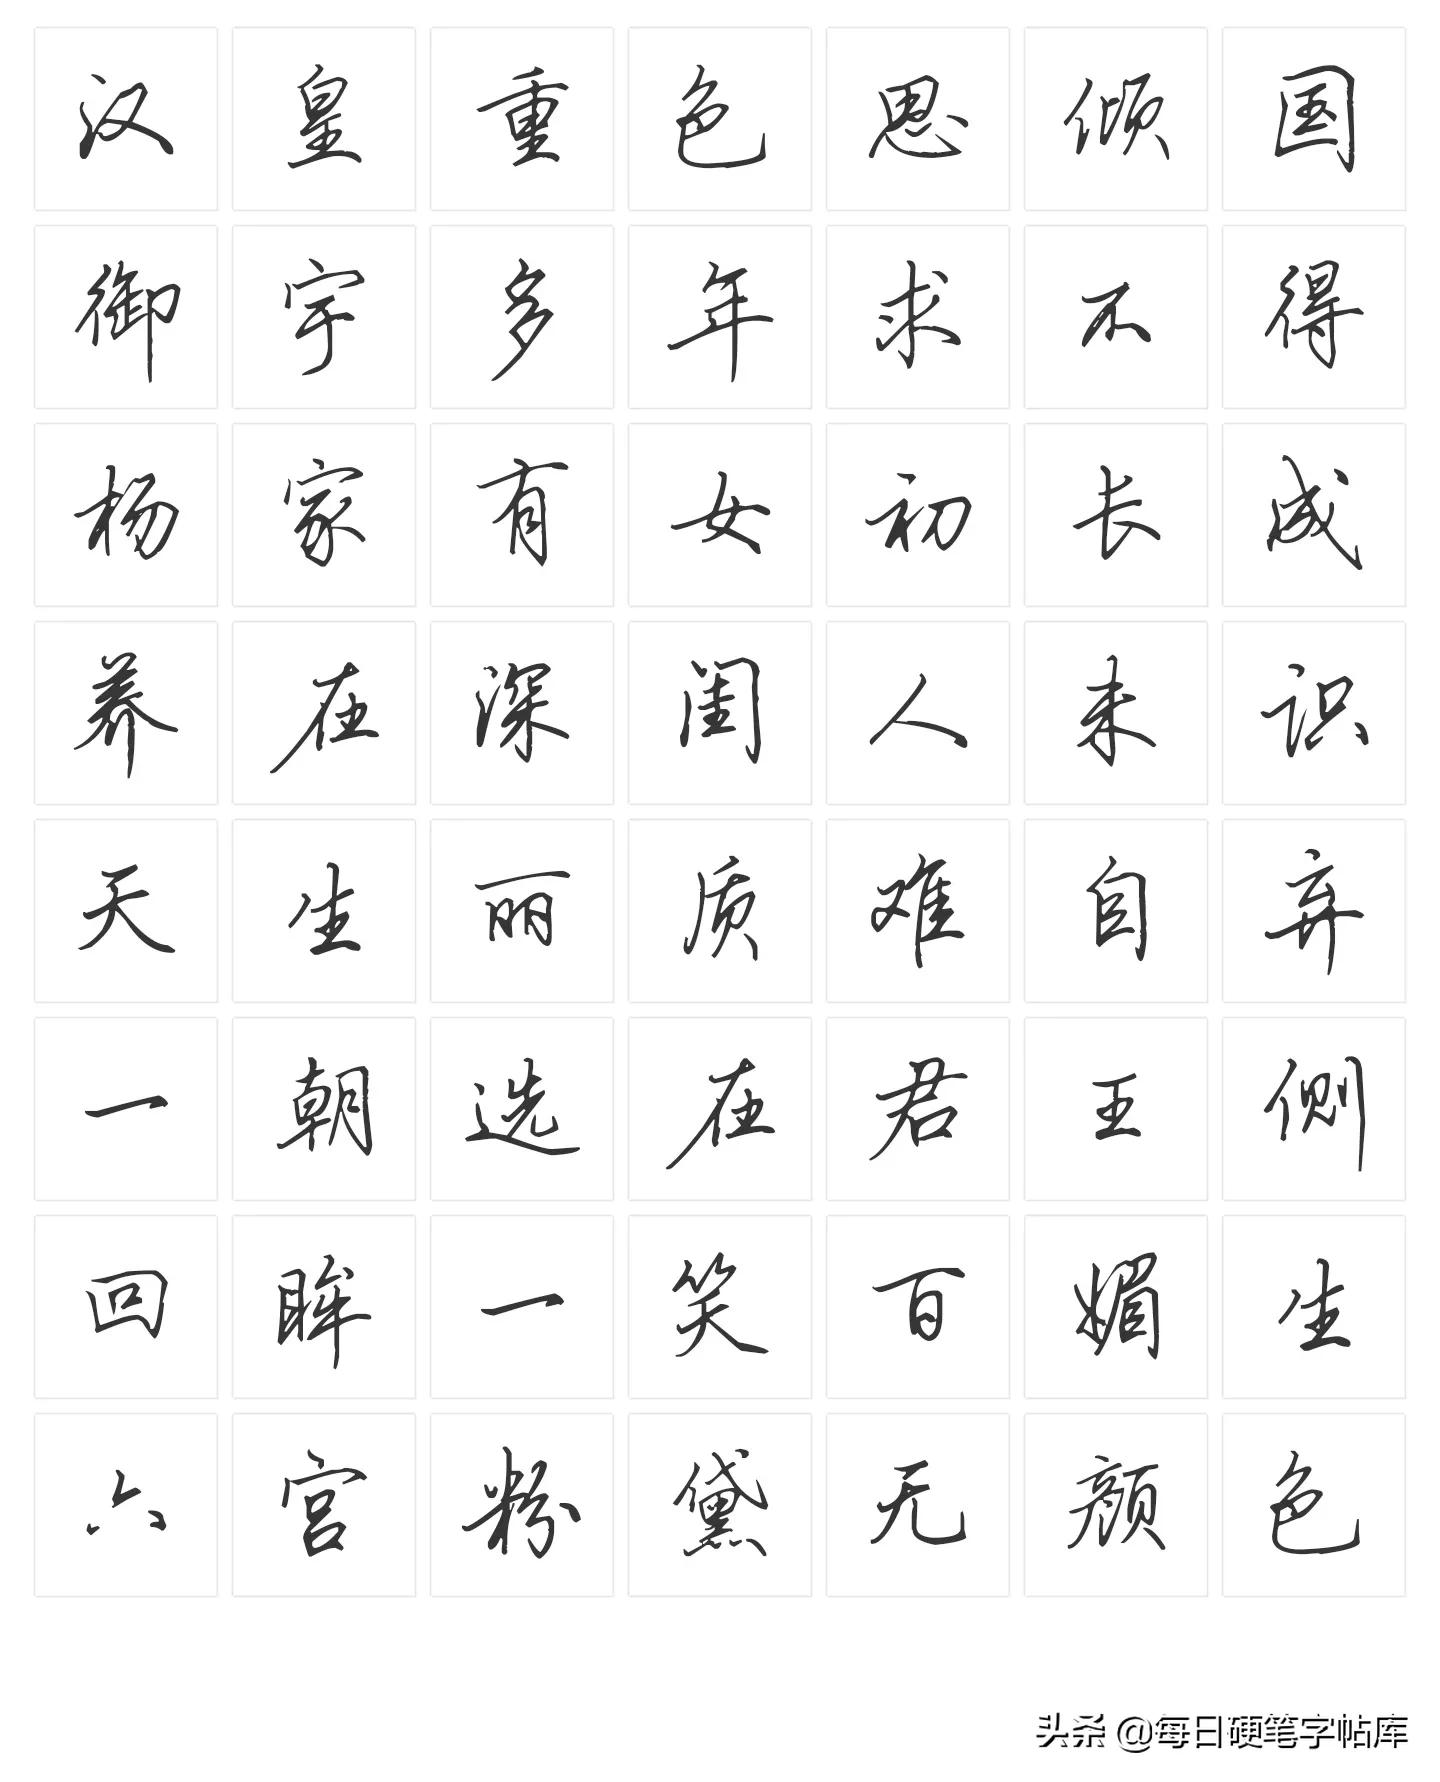 汉皇重色思倾国
御宇多年求不得
杨家有女初长成
养在深闺人未识
天生丽质难自弃
一朝选在君王侧
回眸一笑百媚生
六宫粉黛无颜色
头条 @每日硬笔字帖库